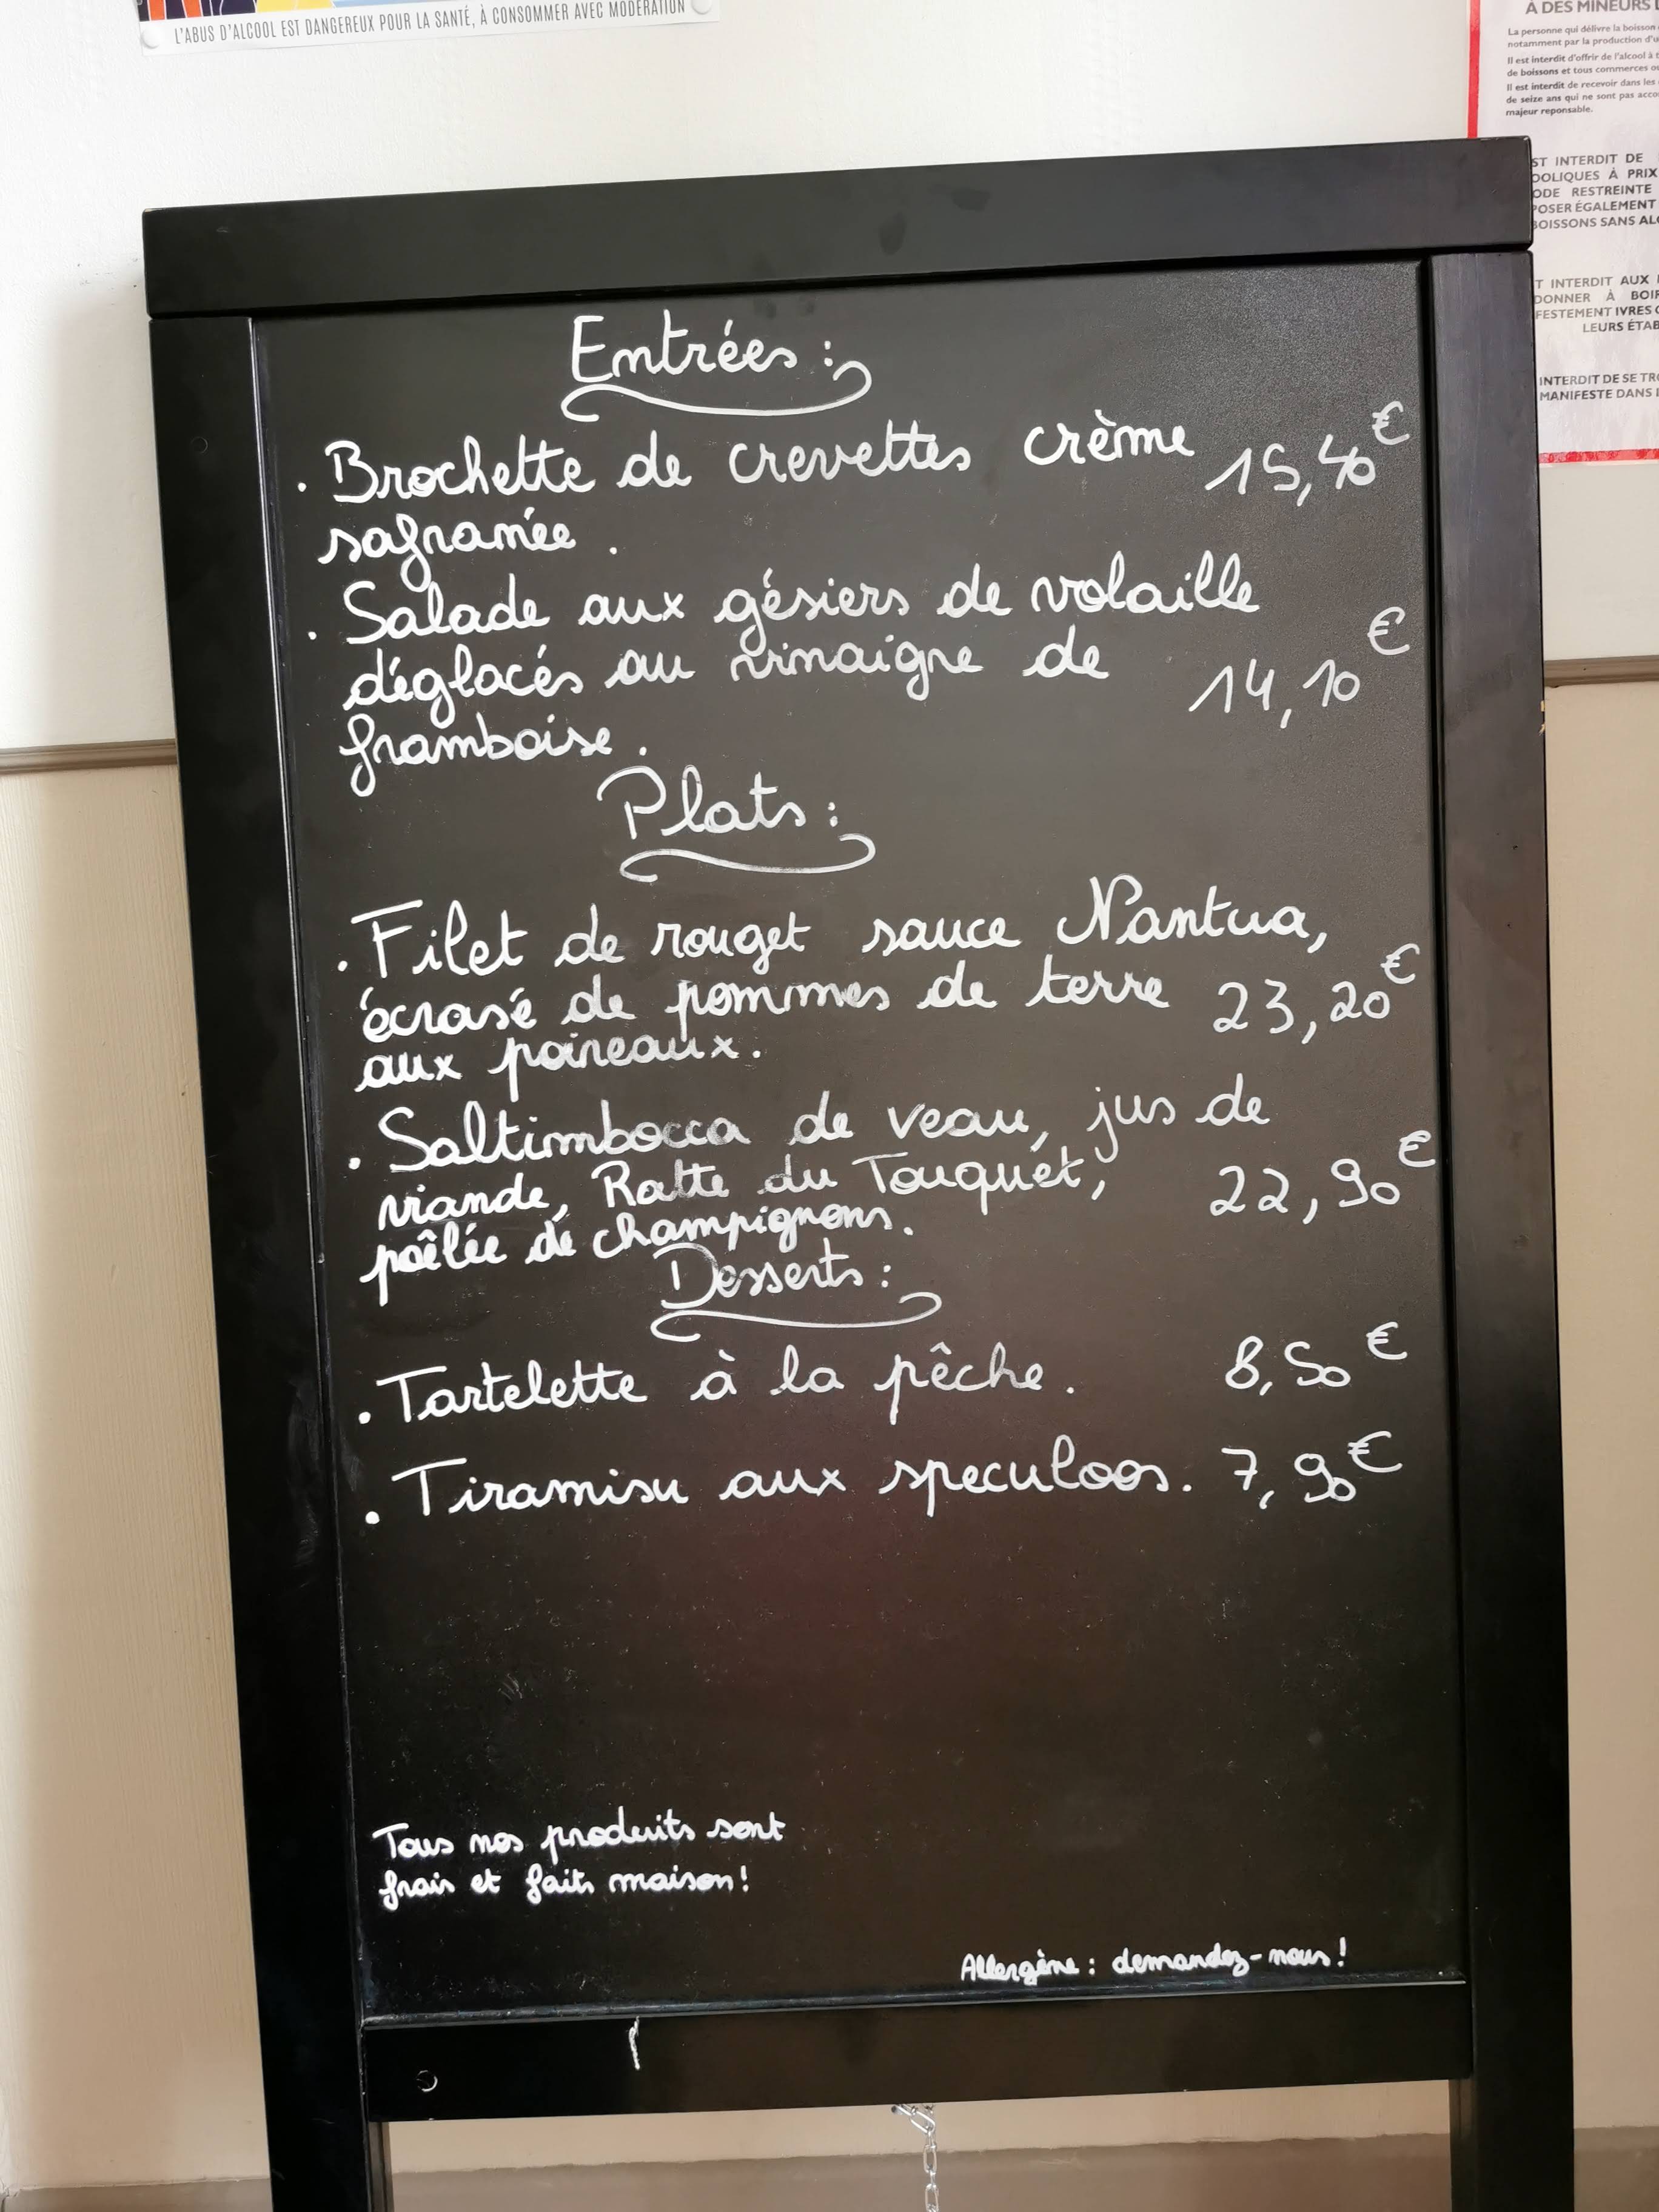 L'ABUS D'ALCOOL EST DANGEREUX POUR LA SANTÉ, À CONSOMMER AVEC MODÉRATION
À DES MINEURS
La personne qui délivre la boisson
notamment par la production d'u
Il est interdit d'offrir de l'alcool à
de boissons et tous commerces ou
Il est interdit de recevoir dans les
de seize ans qui ne sont pas acco
majeur reponsable.
ST INTERDIT DE
OOLIQUES À PRIX
ODE RESTREINTE
POSER ÉGALEMENT
BOISSONS SANS ALC
T INTERDIT AUX
DONNER À BOIR
FESTEMENT IVRES
LEURS ÉTAB
INTERDIT DE SE TRO
MANIFESTE DANS
Entrées :
. Brochette de crevettes crème 15,40€
safranée .
. Salade aux gésiers de volaille
déglacés au vinaigre de 14,10€
framboise .
Plats :
. Filet de rouget sauce Nantua,
écrasé de pommes de terre 23,20€
aux poireaux .
. Saltimbocca de veau, jus de
viande, Ratte du Touquet, 22,90€
poêlée de champignons .
Desserts :
. Tartelette à la pêche . 8,50€
. Tiramisu aux speculoos . 7,90€
Tous nos produits sont
frais et faits maison !
Allergène : demandez-nous !